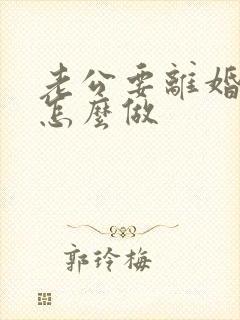 老公要離婚
怎麼做
郭玲梅